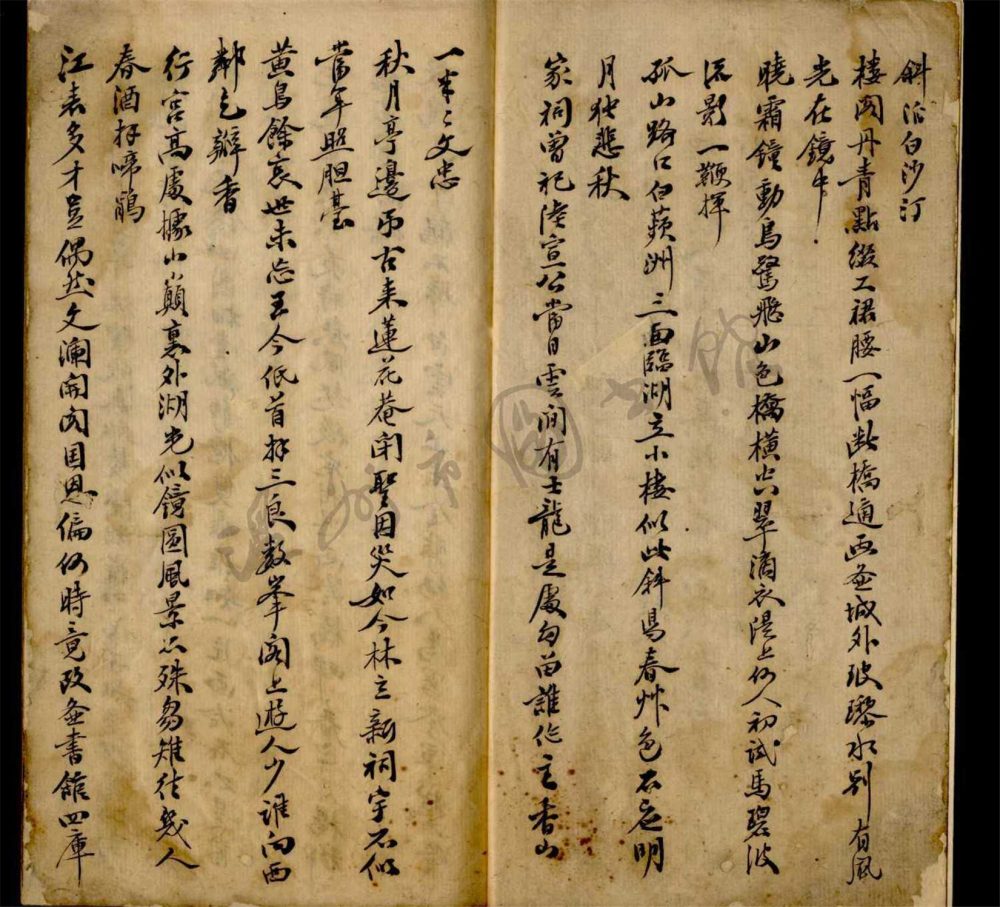 斜活白沙汀
楼阁丹青點缀工裙腰一幅断橋通西金城外玻瓈水别有風
光在鏡中
曉霜鐘動鳥驚飛山色橋橫空翠滴衣湜上何人初試馬碧波
流影一鞭揮
孤山路口白蘋洲三面臨湖立小樓似此斜陽春艸色不應明
月獨悲秋
家祠曾祀陸宣公當日雲间有士龍是處勾留誰作主香山
一半半文忠
秋月亭邊吊古来蓮花菴闭聖因災如今林立新祠宇不似
當年照胆臺
黄鳥餘哀世未忘至今低首拜三良数峯阁上遊人少谁向西
鄰乞瓣香
行宮高處據山巔裏外湖光似鏡圆風景不殊芻雉往幾人
春酒拜啼鵑
江表多才豈偶然文瀾開阁国恩偏何時竟改金書館四庫